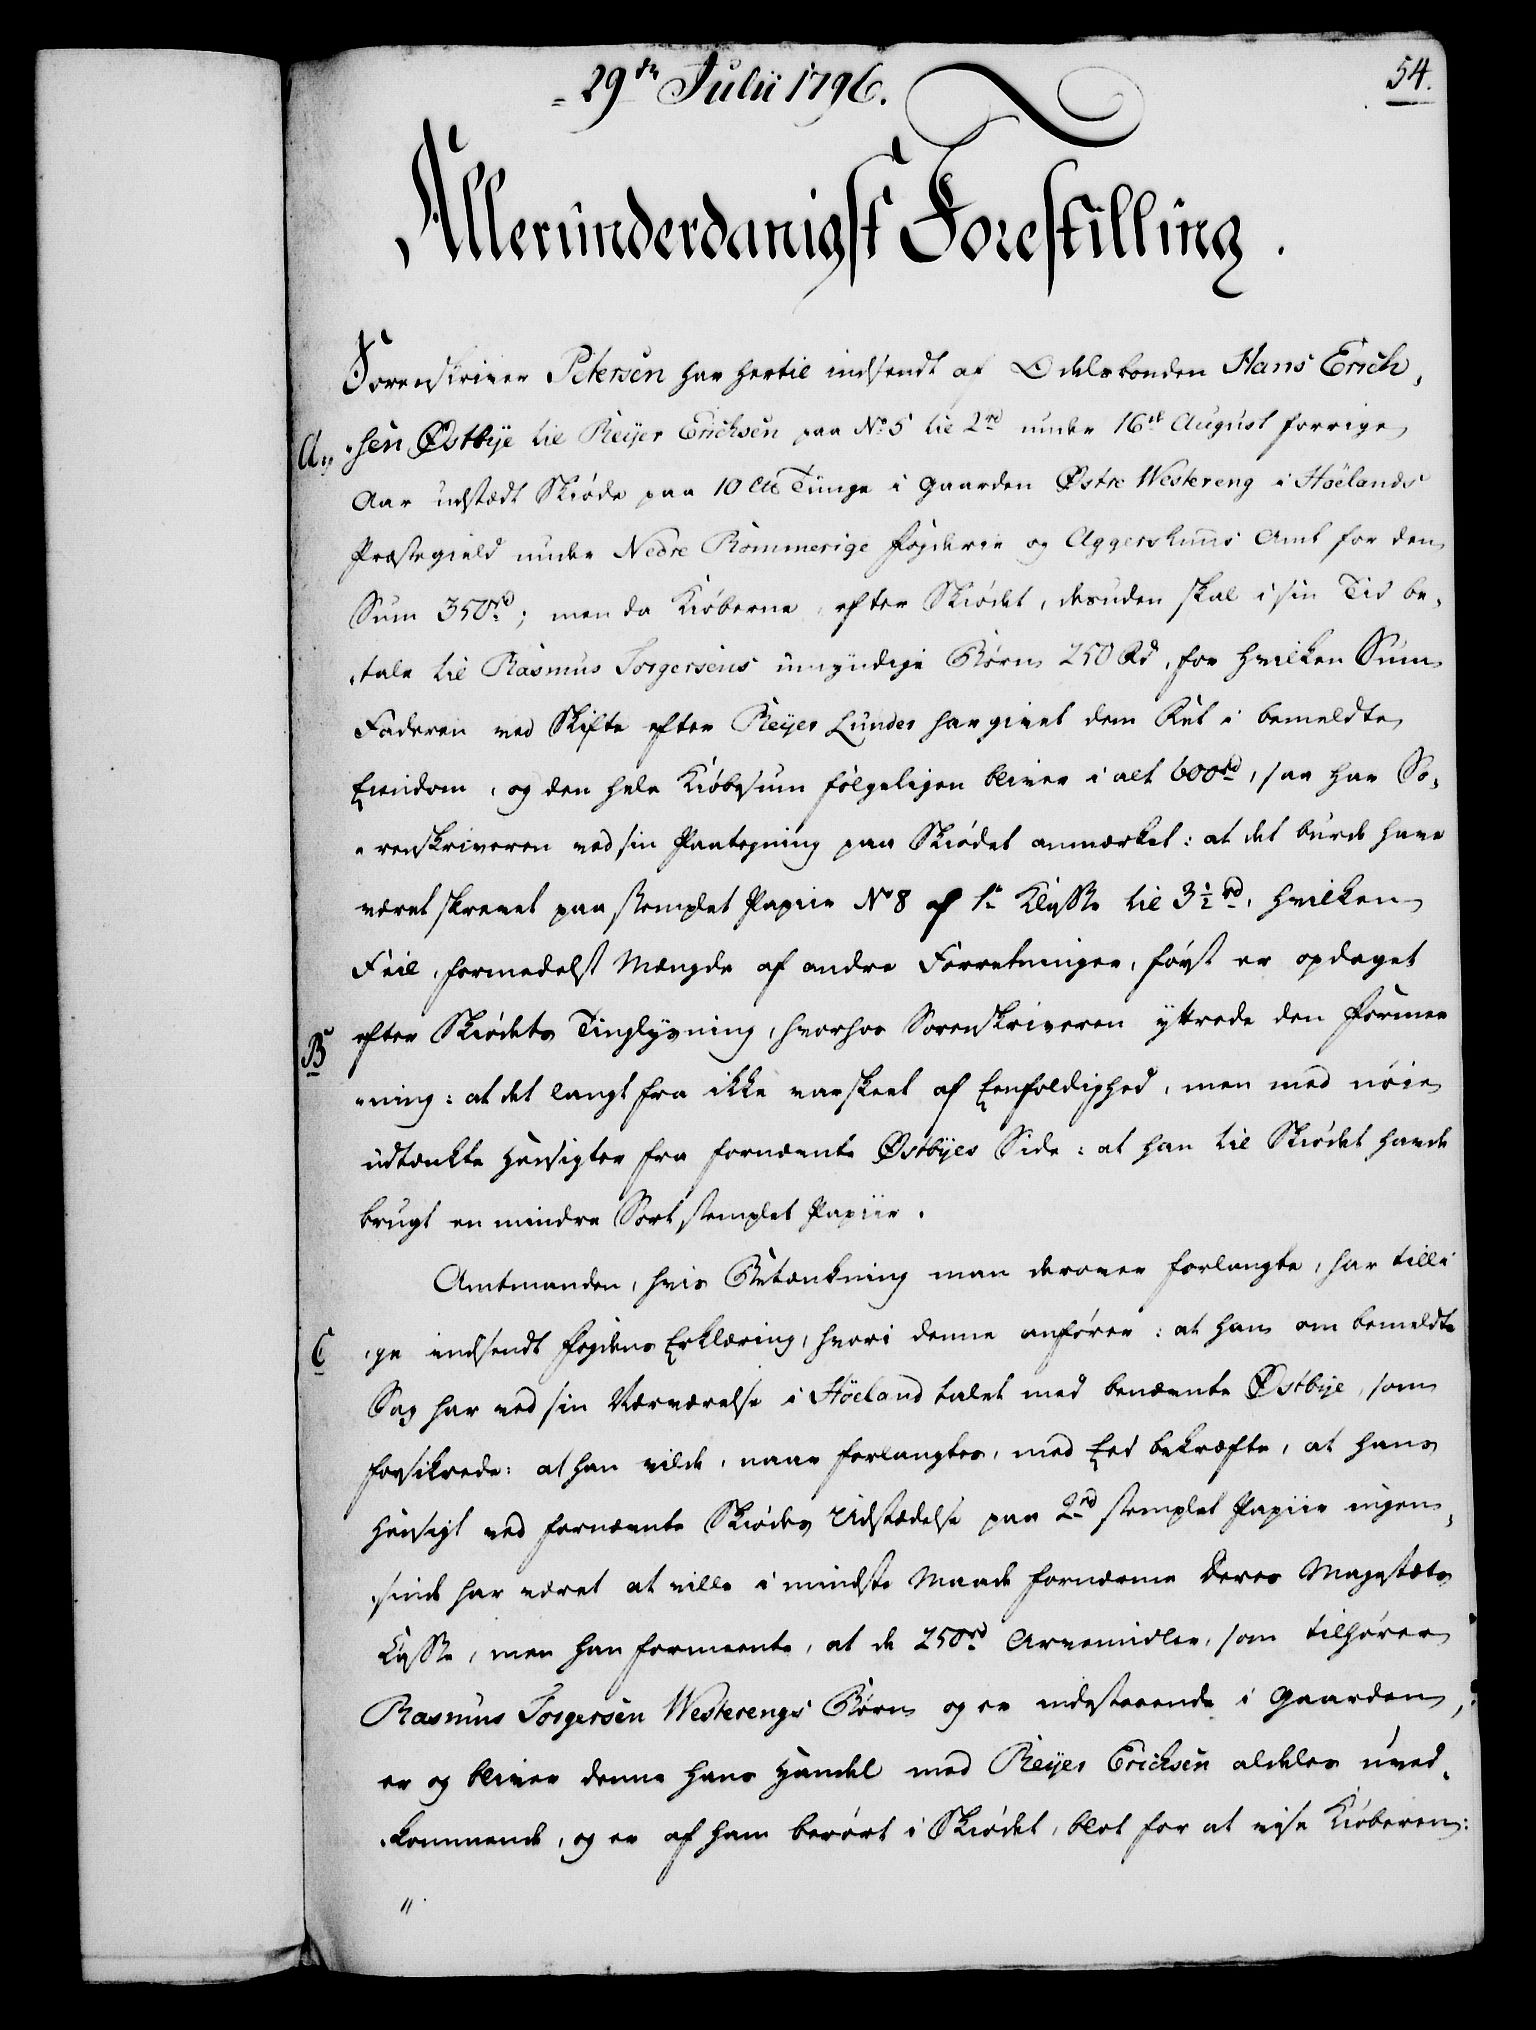 29de Julii 1796.
54.
Allerunderdanigst Forestilling.
Sorenskriver Petersen har hertil indsendt af Odelsbonden Hans Erich-
A,, -sen Østbye til Reyer Erichsen paa No 5 til 2rd under 16de August forrige
Aar udstædt Skiøde paa 10 Lb Tunge i Gaarden Østre Westereng i Høelands
Præstegield under Nedre Rommerige Fogderie og Aggershuus Amt for den
Sum 350rd; men da Kiøberne, efter Skiødet, desuden skal i sin Tid be-
-tale til Rasmus Torgersens umyndige Børn 250 Rd, for hvilken Sum
Faderen ved Skifte efter Reyer Lundes har givet dem Ret i bemeldte
Eiendom, og den hele Kiøbesum følgeligen bliver i alt 600rd, saa har So-
-renskriveren ved sin Paategning paa Skiødet anmærket: at det burde have
været skrevet paa stemplet Papiir No 8 af 1te Klasse til 3½rd, hvilken
Feil, formedelst Mængde af andre Forretninger, først er opdaget
efter Skiødets Tinglysning, hvorhos Sorenskriveren yttrede den Formee-
B -ning: at det langt fra ikke var skeet af Eenfoldighed, men med nøie
udtænkte Hensigter fra fornævnte Østbyes Side: at han til Skiødet havde
brugt en mindre Sort stemplet Papiir.
Amtmanden, hvis Betænkning man derover forlangte, har tilli-
C -ge indsendt Fogdens Erklæring, hvori denne anfører: at han om bemeldte
Sag har ved sin Nærværelse i Høeland talet med benævnte Østbye, som
forsikrede: at han vilde, naar forlangtes, med Eed bekræfte, at hans
Hensigt ved fornævnte Skiødes Udstædelse paa 2rd stemplet Papiir ingen-
-sinde har været at ville i mindste Maade fornærme Deres Majestæts
Casse, men han formeente, at de 250rd Arvemidler, som tilhører
Rasmus Torgersen Westerengs Børn og er indestaaende i Gaarden,
er og bliver denne hans Handel med Reyer Erichsen aldeles uved-
-kommende, og er af ham berørt i Skiødet, blot for at vise Kiøberen:
"